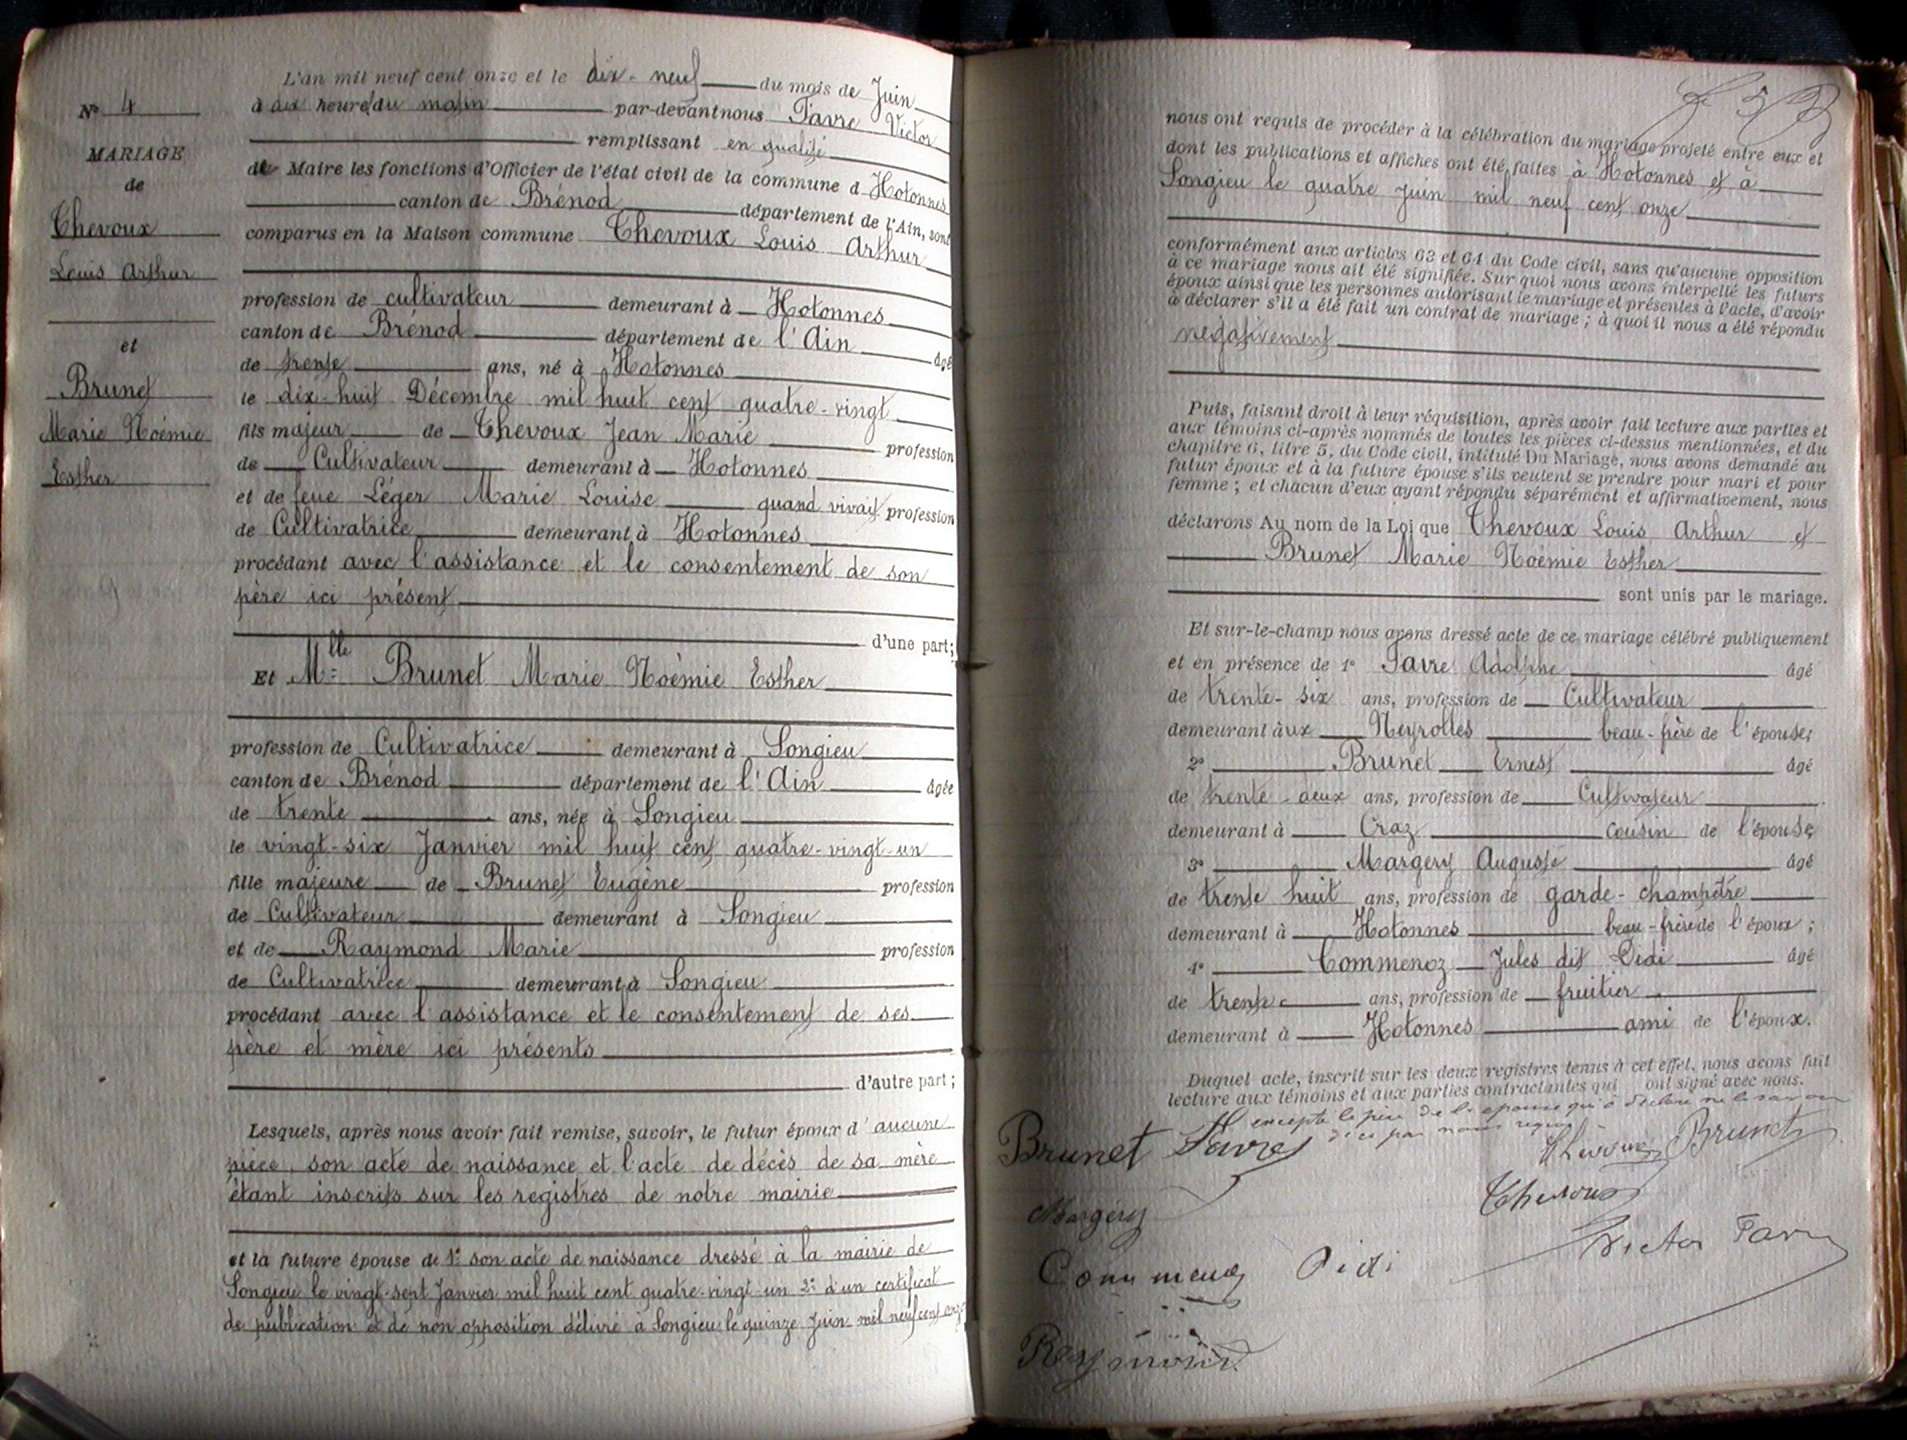 L'an mil neuf cent onze et le dix-neuf du mois de Juin
N° 4
à dix heures du matin par-devant nous Favre Victor
remplissant en qualité
MARIAGE
de
de Maire les fonctions d'Officier de l'état civil de la commune d Hotonnes
canton de Brénod département de l'Ain, sont
Chevoux
Louis Arthur
comparus en la Maison commune Chevoux Louis Arthur
profession de cultivateur demeurant à Hotonnes
canton de Brénod département de l'Ain âgé
et
de trente ans, né à Hotonnes
Brunet
le dix-huit Décembre mil huit cent quatre-vingt
Marie Noémie
Esther
fils majeur de Chevoux Jean Marie profession
de Cultivateur demeurant à Hotonnes
et de feue Léger Marie Louise quand vivait profession
de Cultivatrice demeurant à Hotonnes
procédant avec l'assistance et le consentement de son
père ici présent
d'une part;
Et Mlle Brunet Marie Noémie Esther
profession de Cultivatrice demeurant à Songieu
canton de Brénod département de l'Ain âgée
de trente ans, née à Songieu
le vingt-six Janvier mil huit cent quatre-vingt-un
fille majeure de Brunet Eugène profession
de Cultivateur demeurant à Songieu
et de Raymond Marie profession
de Cultivatrice demeurant à Songieu
procédant avec l'assistance et le consentement de ses
père et mère ici présents
d'autre part;
Lesquels, après nous avoir fait remise, savoir, le futur époux d'aucune
pièce, son acte de naissance et l'acte de décès de sa mère
étant inscrits sur les registres de notre mairie
et la future épouse de 1° son acte de naissance dressé à la mairie de
Songieu le vingt-sept Janvier mil huit cent quatre-vingt-un 2° d'un certificat
de publication et de non opposition délivré à Songieu le quinze Juin mil neuf cent onze
nous ont requis de procéder à la célébration du mariage projeté entre eux et
dont les publications et affiches ont été faites à Hotonnes et à
Songieu le quatre Juin mil neuf cent onze
conformément aux articles 63 et 64 du Code civil, sans qu'aucune opposition
à ce mariage nous ait été signifiée. Sur quoi nous avons interpellé les futurs
époux ainsi que les personnes autorisant le mariage et présentes à l'acte, d'avoir
à déclarer s'il a été fait un contrat de mariage; à quoi il nous a été répondu
négativement
Puis, faisant droit à leur réquisition, après avoir fait lecture aux parties et
aux témoins ci-après nommés de toutes les pièces ci-dessus mentionnées, et du
chapitre 6, titre 5, du Code civil, intitulé Du Mariage, nous avons demandé au
futur époux et à la future épouse s'ils veulent se prendre pour mari et pour
femme; et chacun d'eux ayant répondu séparément et affirmativement, nous
déclarons Au nom de la Loi que Chevoux Louis Arthur et
Brunet Marie Noémie Esther
sont unis par le mariage.
Et sur-le-champ nous avons dressé acte de ce mariage célébré publiquement
et en présence de 1° Favre Adolphe âgé
de trente-six ans, profession de Cultivateur
demeurant àux Neyrolles beau-frère de l'épouse;
2° Brunet Ernest âgé
de trente-deux ans, profession de Cultivateur
demeurant à Craz cousin de l'épouse
3° Margery Auguste âgé
de trente huit ans, profession de garde-champêtre
demeurant à Hotonnes beau-frère de l'époux;
4° Commenoz Jules dit Didi âgé
de trente ans, profession de fruitier
demeurant à Hotonnes ami de l'époux.
Duquel acte, inscrit sur les deux registres tenus à cet effet, nous avons fait
lecture aux témoins et aux parties contractantes qui ont signé avec nous.
excepté le père de l'épouse qui a déclaré ne le savoir
Brunet Favre Chevoux Brunet
Margery Chevoux
Victor Favre
Commenoz Didi
Raymond